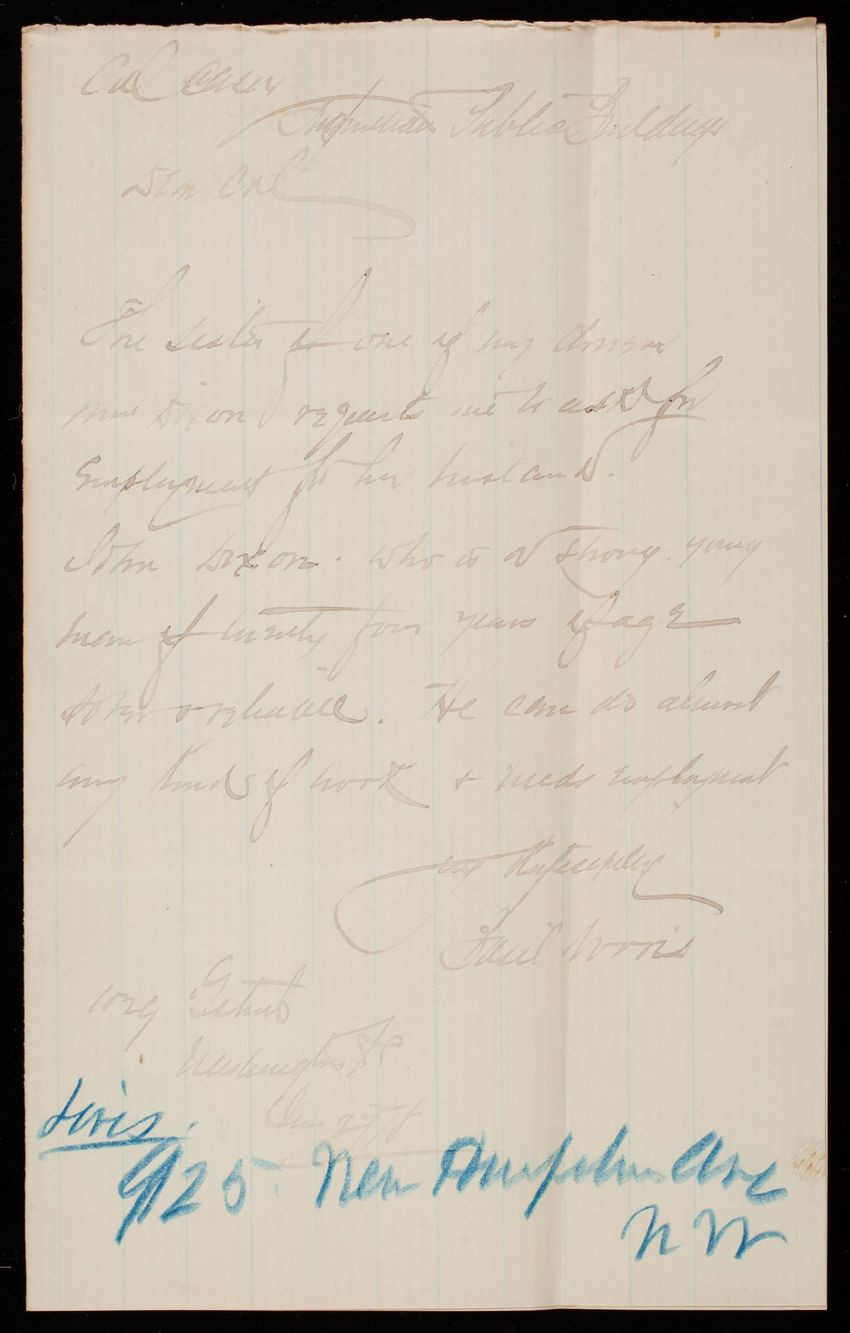 Col Casey
Public Buildings
Dear Col
The sister of one of my
Dixon requests me to ask for
Employment for her husband.
John Dixon. who is a strong young
man of twenty four years of age
sober & reliable. He can do almost
any kind of work & needs employment
Respectfully
Basil Norris
1829 G Street
Washington
Jan 2nd 78
lives.
925 New Hampshire Ave
N W